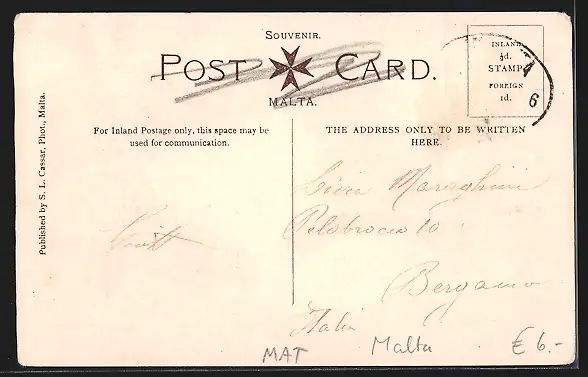 SOUVENIR.
POST CARD.
MALTA.
INLAND
½d.
STAMP
FOREIGN
1d.
6
Published by S. L. Cassar, Phot., Malta.
For Inland Postage only, this space may be
used for communication.
THE ADDRESS ONLY TO BE WRITTEN
HERE.
10
Bergamo
Italia
MAT
Malta
€ 6.-